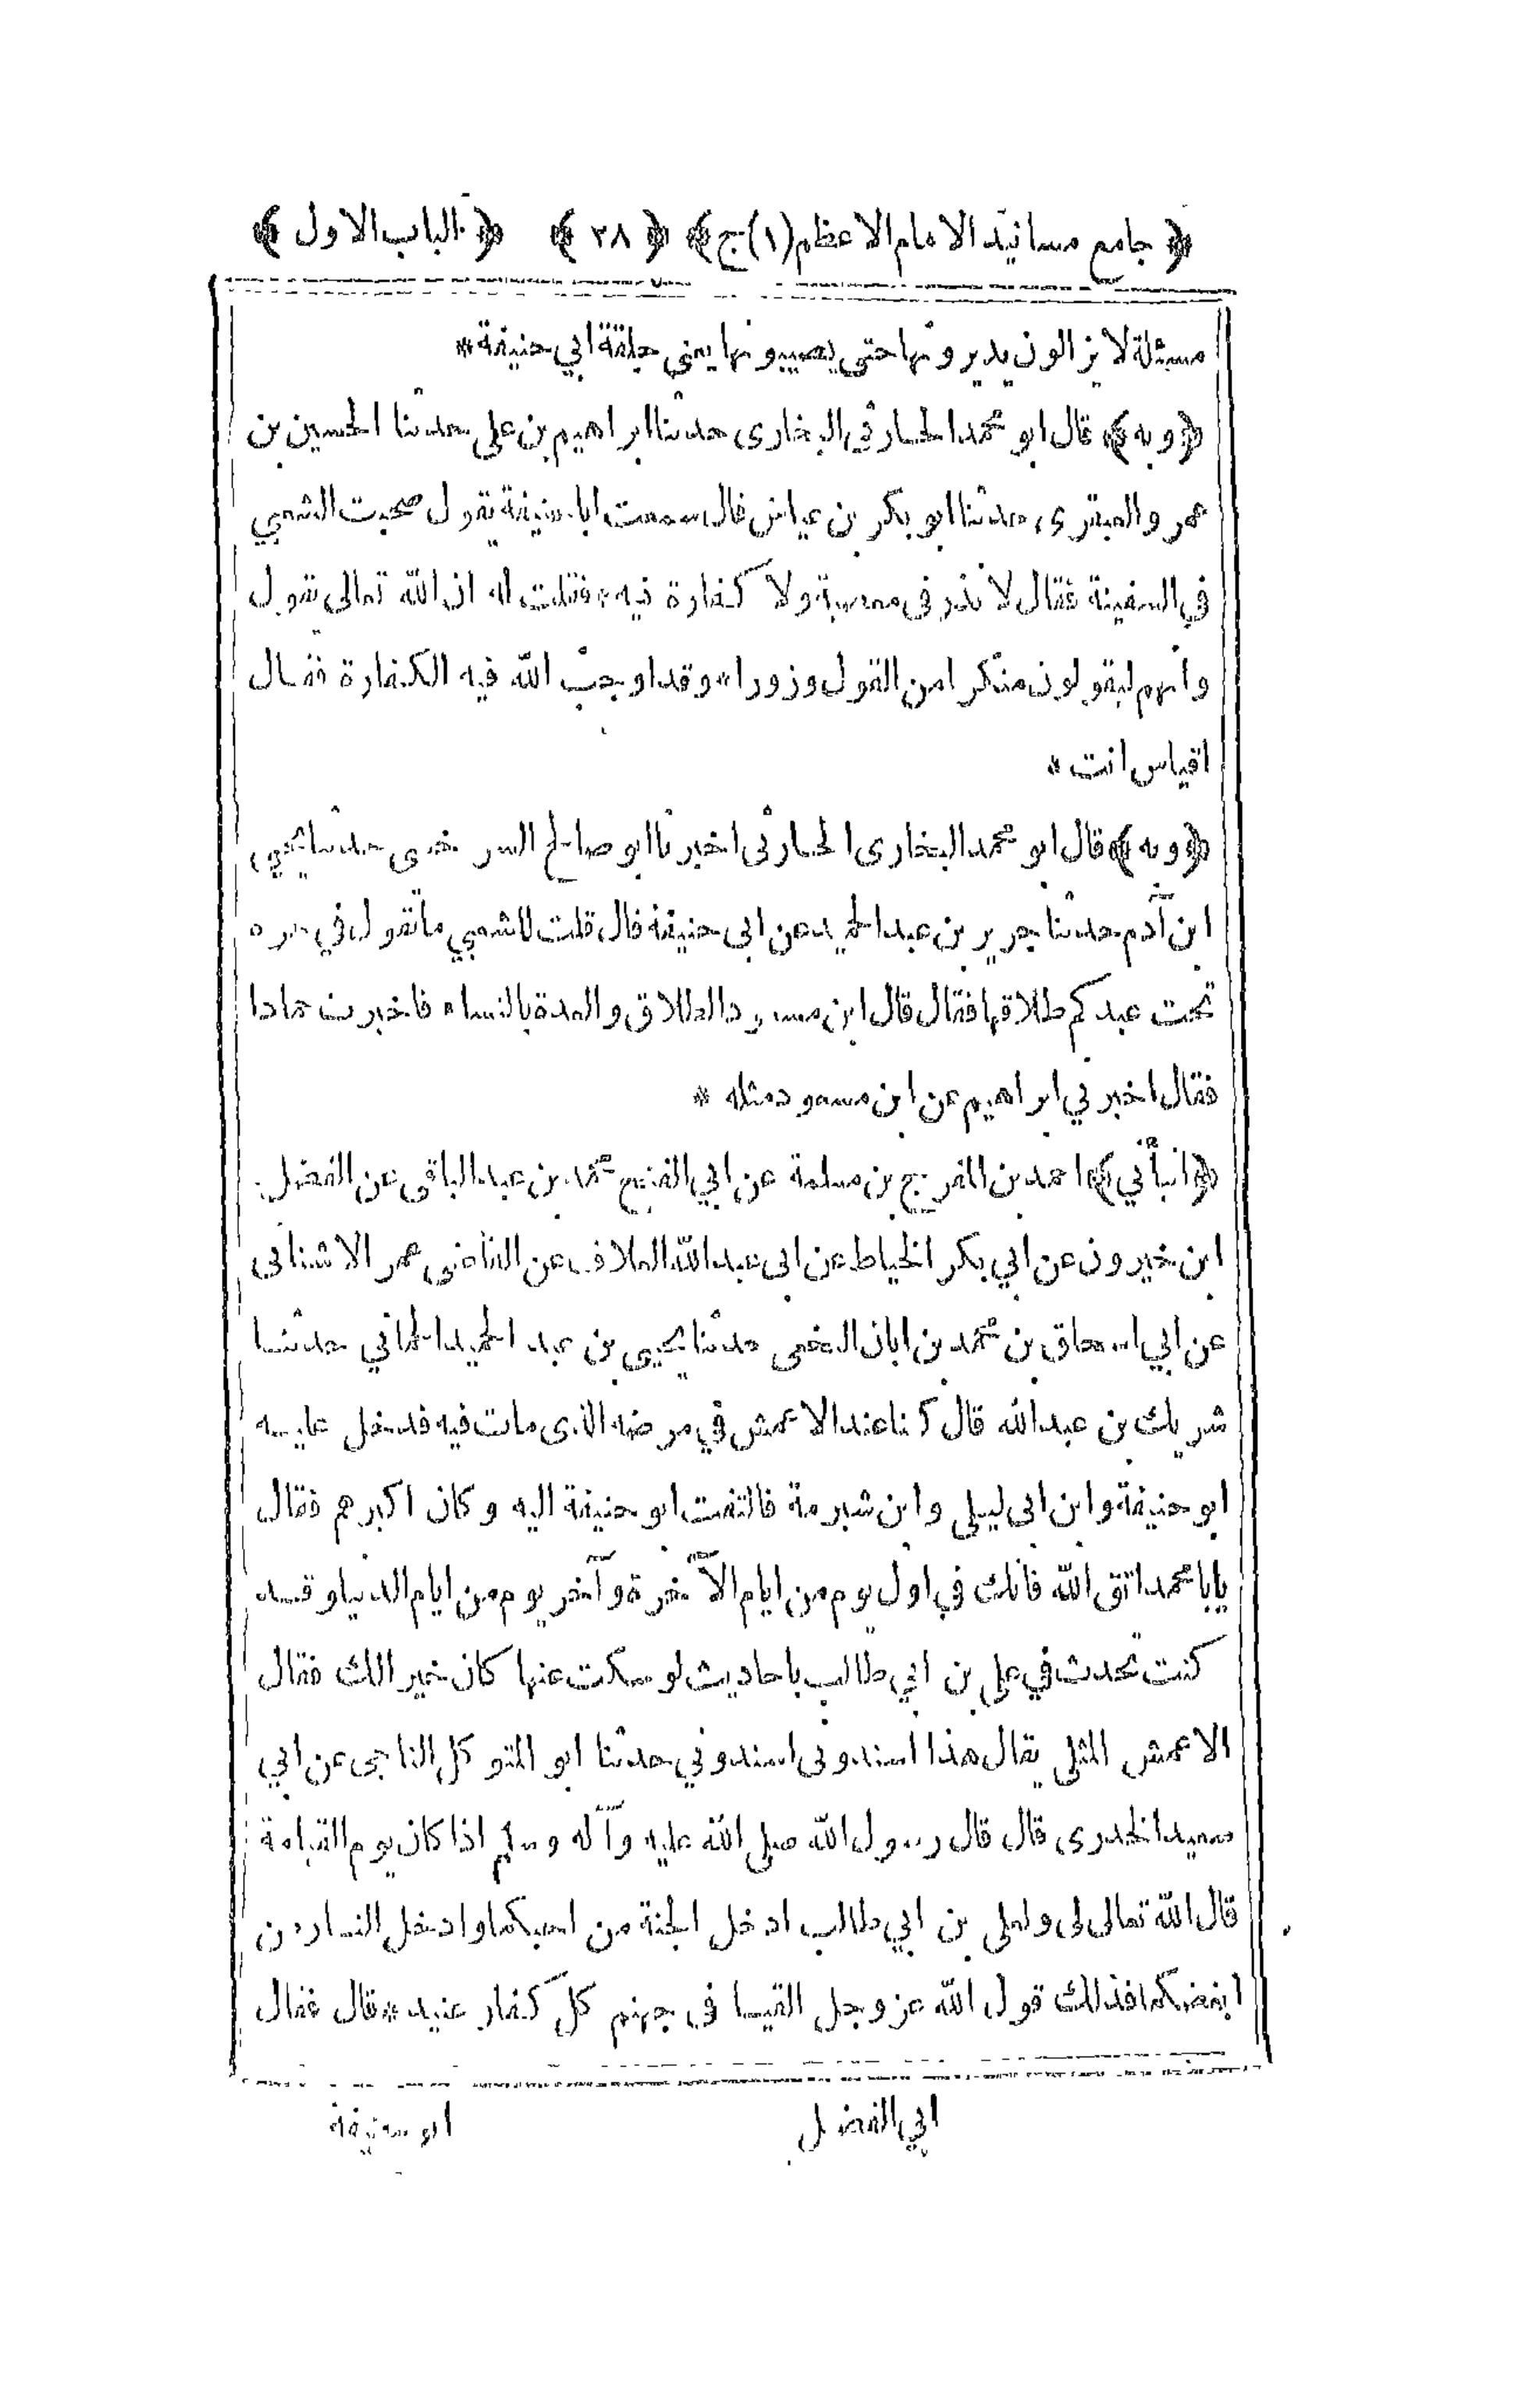 ﴿ جامع مسانيد الامام الاعظم(١)ج﴾ ﴿ ٢٨ ﴾ ﴿ الباب الاول ﴾
مسئلة لا يزالون يديرونها حتى يصيبونها يعنى حلقة ابي حنيفة *
﴿ وبه ﴾ قال ابو محمد الحارثي البخارى حدثنا ابراهيم بن على حدثنا الحسين بن
عمرو العبقرى حدثنا ابو بكر بن عياش قال سمعت ابا حنيفة يقول صحبت الشعبي
في السفينة فقال لا نذر فى معصية ولا كفارة فيه، فقلت له ان الله تعالى يقول
وانهم ليقولون منكرا من القول وزورا * وقد اوجب الله فيه الكفارة فقال
اقياس انت *
﴿ وبه ﴾ قال ابو محمد البخارى الحارثى اخبرنا ابو صالح السرخسى حدثنا يحيي
ابن آدم حدثنا جرير بن عبد الحميد عن ابى حنيفة قال قلت للشعبي ما تقول في حرة
تحت عبد كم طلاقها فقال قال ابن مسعود الطلاق والعدة بالنساء فاخبرت حمادا
فقال اخبرني ابراهيم عن ابن مسعود مثله *
﴿ انبأني ﴾ احمد بن المفرج بن مسلمة عن ابي الفتح محمد بن عبد الباقى عن الفضل
ابن خيرون عن ابي بكر الخياط عن ابى عبد الله العلاف عن القاضى عمر الاشنانى
عن ابي اسحاق بن محمد بن ابان النخعى حدثنا يحيى بن عبد الحميد الحماني حدثنا
شريك بن عبد الله قال كنا عند الاعمش في مرضه الذى مات فيه فدخل عليه
ابو حنيفة وابن ابى ليلى وابن شبرمة فالتفت ابو حنيفة اليه وكان اكبرهم فقال
يابا محمد اتق الله فانك في اول يوم من ايام الآخرة وآخر يوم من ايام الدنيا وقد
كنت تحدث في على بن ابي طالب باحاديث لو سكت عنها كان خيرا لك فقال
الاعمش المثلى يقال هذا اسندونى اسندوني حدثنا ابو المتوكل الناجى عن ابي
سعيد الخدرى قال قال رسول الله صلى الله عليه وآله وسلم اذا كان يوم القيامة
قال الله تعالى لى ولعلى بن ابي طالب ادخل الجنة من احبكما وادخل النار من
ابغضكما فذلك قول الله عز وجل القيا فى جهنم كل كفار عنيد * قال فقال
ابي الفضل
ابو حنيفة